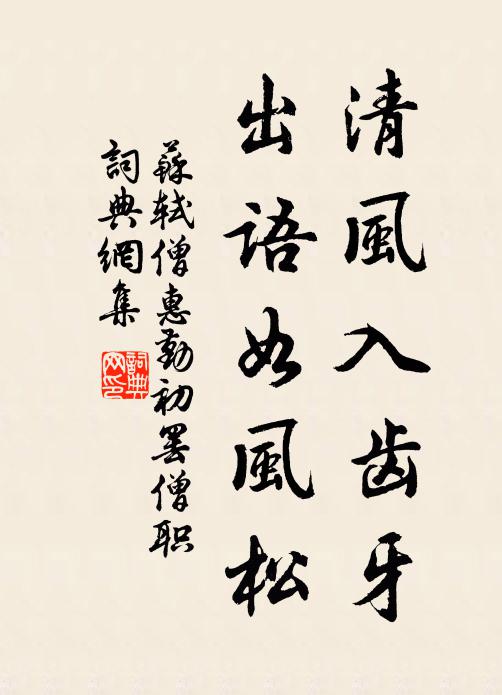 清風入齿牙
出語如風松
蘇軾僧惠勤初罢僧职
詞典網集
詞典网印